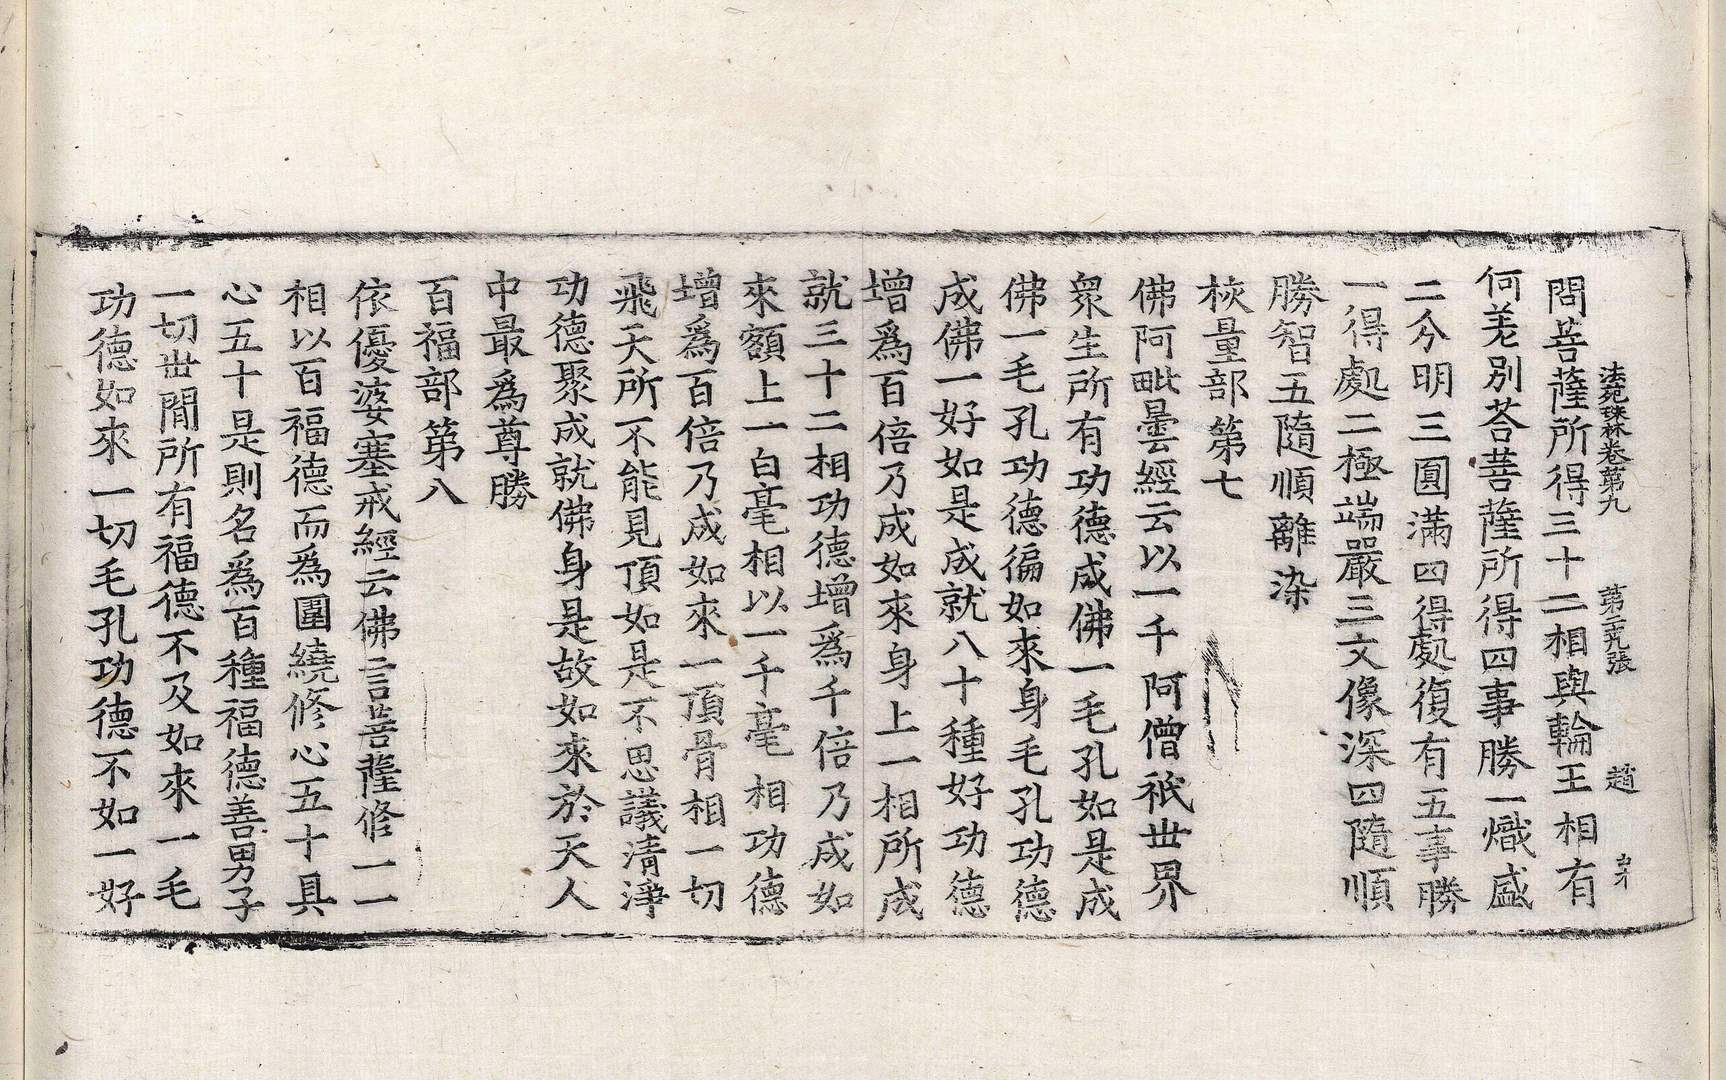 法苑珠林卷第九 第二十九張 趙
問菩薩所得三十二相與輪王相有
何差別荅菩薩所得四事勝一熾盛
二分明三圓滿四得處復有五事勝
一得處二極端嚴三文像深四隨順
勝智五隨順離染
挍量部第七
佛阿毗曇經云以一千阿僧祇世界
衆生所有功德成佛一毛孔如是成
佛一毛孔功德徧如來身毛孔功德
成佛一好如是成就八十種好功德
增爲百倍乃成如來身上一相所成
就三十二相功德增爲千倍乃成如
來額上一白毫相以一千毫相功德
增爲百倍乃成如來一頂骨相一切
飛天所不能見頂如是不思議清淨
功德聚成就佛身是故如來於天人
中最爲尊勝
百福部第八
依優婆塞戒經云佛言菩薩修一一
相以百福德而爲圍繞修心五十具
心五十是則名爲百種福德善男子
一切世閒所有福德不及如來一毛
功德如來一切毛孔功德不如一好